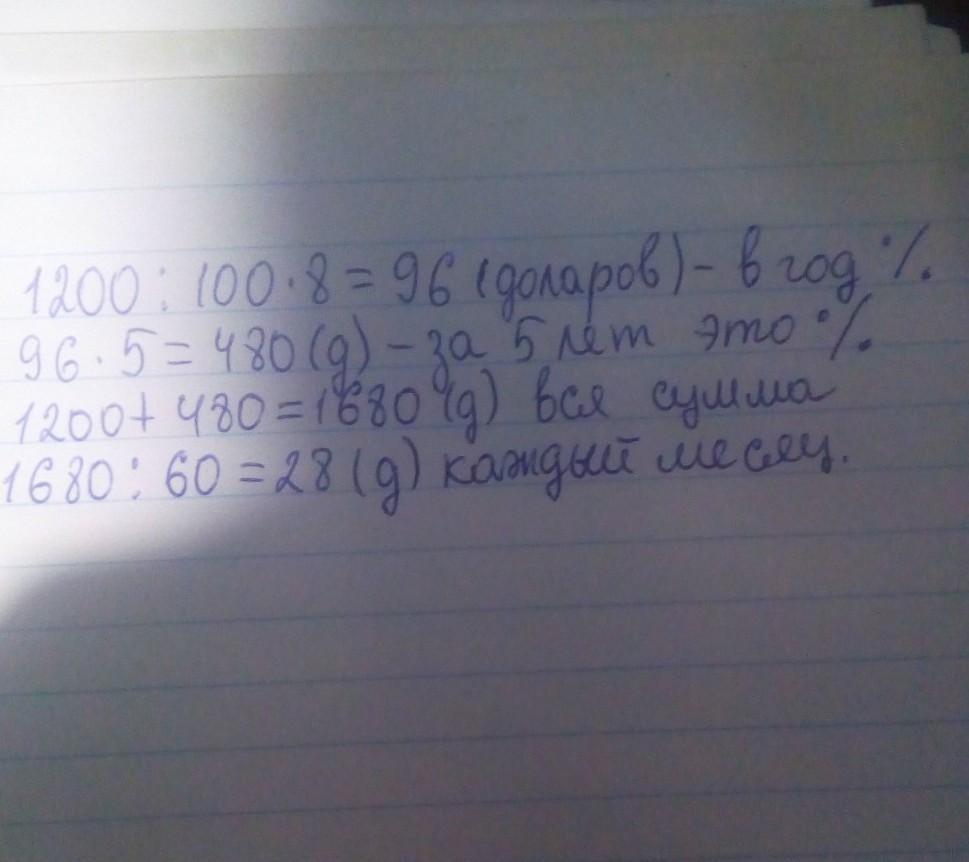 1200 : 100 · 8 = 96 (доларов) - в год %.
96 · 5 = 480 (д) - за 5 лет это %.
1200 + 480 = 1680 (д) вся сумма
1680 : 60 = 28 (д) каждый месяц.